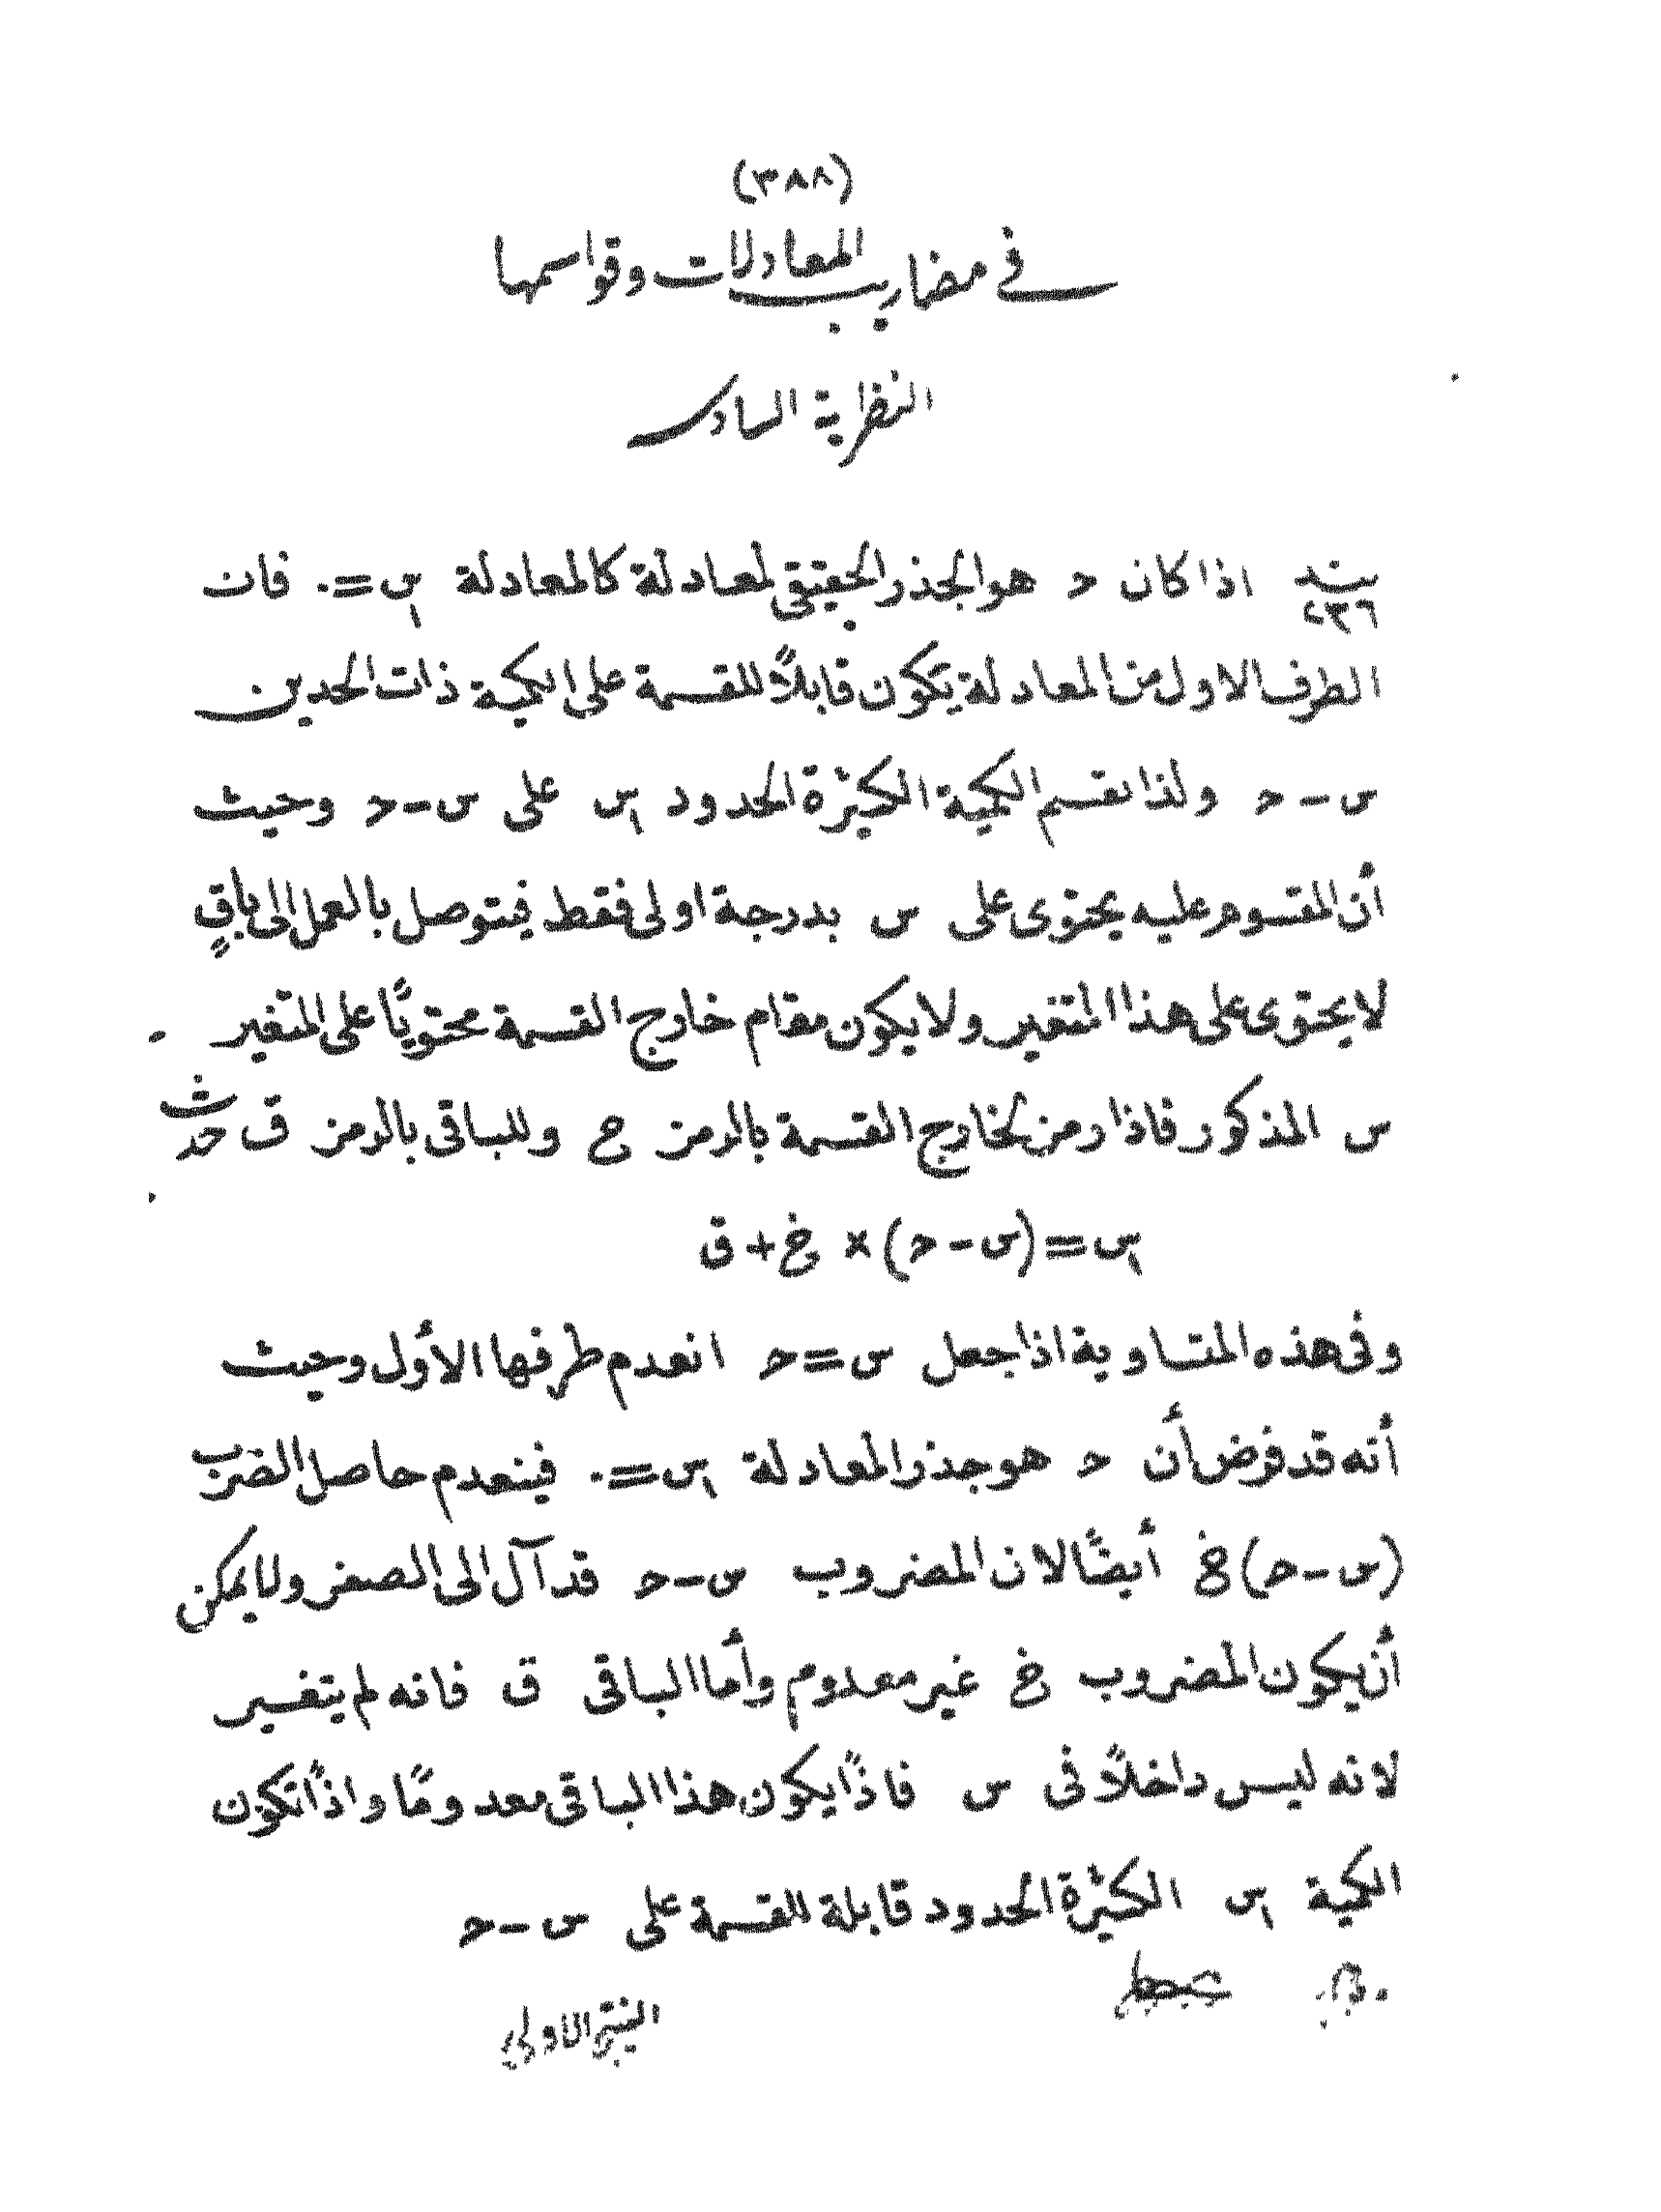 (٣٨٨)
في مضاريب المعادلات وقواسمها
النظرية السادسة
بند ٢٣٦ اذا كان حـ هو الجذر الحقيقى لمعادلة كالمعادلة س١ = ٠ فان
الطرف الاول من المعادلة يكون قابلاً للقسمة على الكمية ذات الحدين
س - حـ ولذا نقسم الكمية الكثيرة الحدود س١ على س - حـ وحيث
أن المقسوم عليه يحتوى على س بدرجة اولى فقط فيتوصل بالعمل الى باقٍ
لا يحتوى على هذا المتغير ولا يكون مقام خارج القسمة محتويًا على المتغير
س المذكور فاذا رمز لخارج القسمة بالرمز خ وللباقى بالرمز ق حدث
س١ = (س - حـ) × خ + ق
وفى هذه المتساوية اذا جعل س = حـ انعدم طرفها الأول وحيث
أنه قد فرض أن حـ هو جذر المعادلة س١ = ٠ فينعدم حاصل الضرب
(س - حـ) خ أيضًا لان المضروب س - حـ قد آل الى الصفر ولا يمكن
أن يكون المضروب خ غير معدوم وأما الباقى ق فانه لم يتغير
لانه ليس داخلاً فى س فاذًا يكون هذا الباقى معدومًا واذًا تكون
الكمية س١ الكثيرة الحدود قابلة للقسمة على س - حـ
النتيجة الاولى